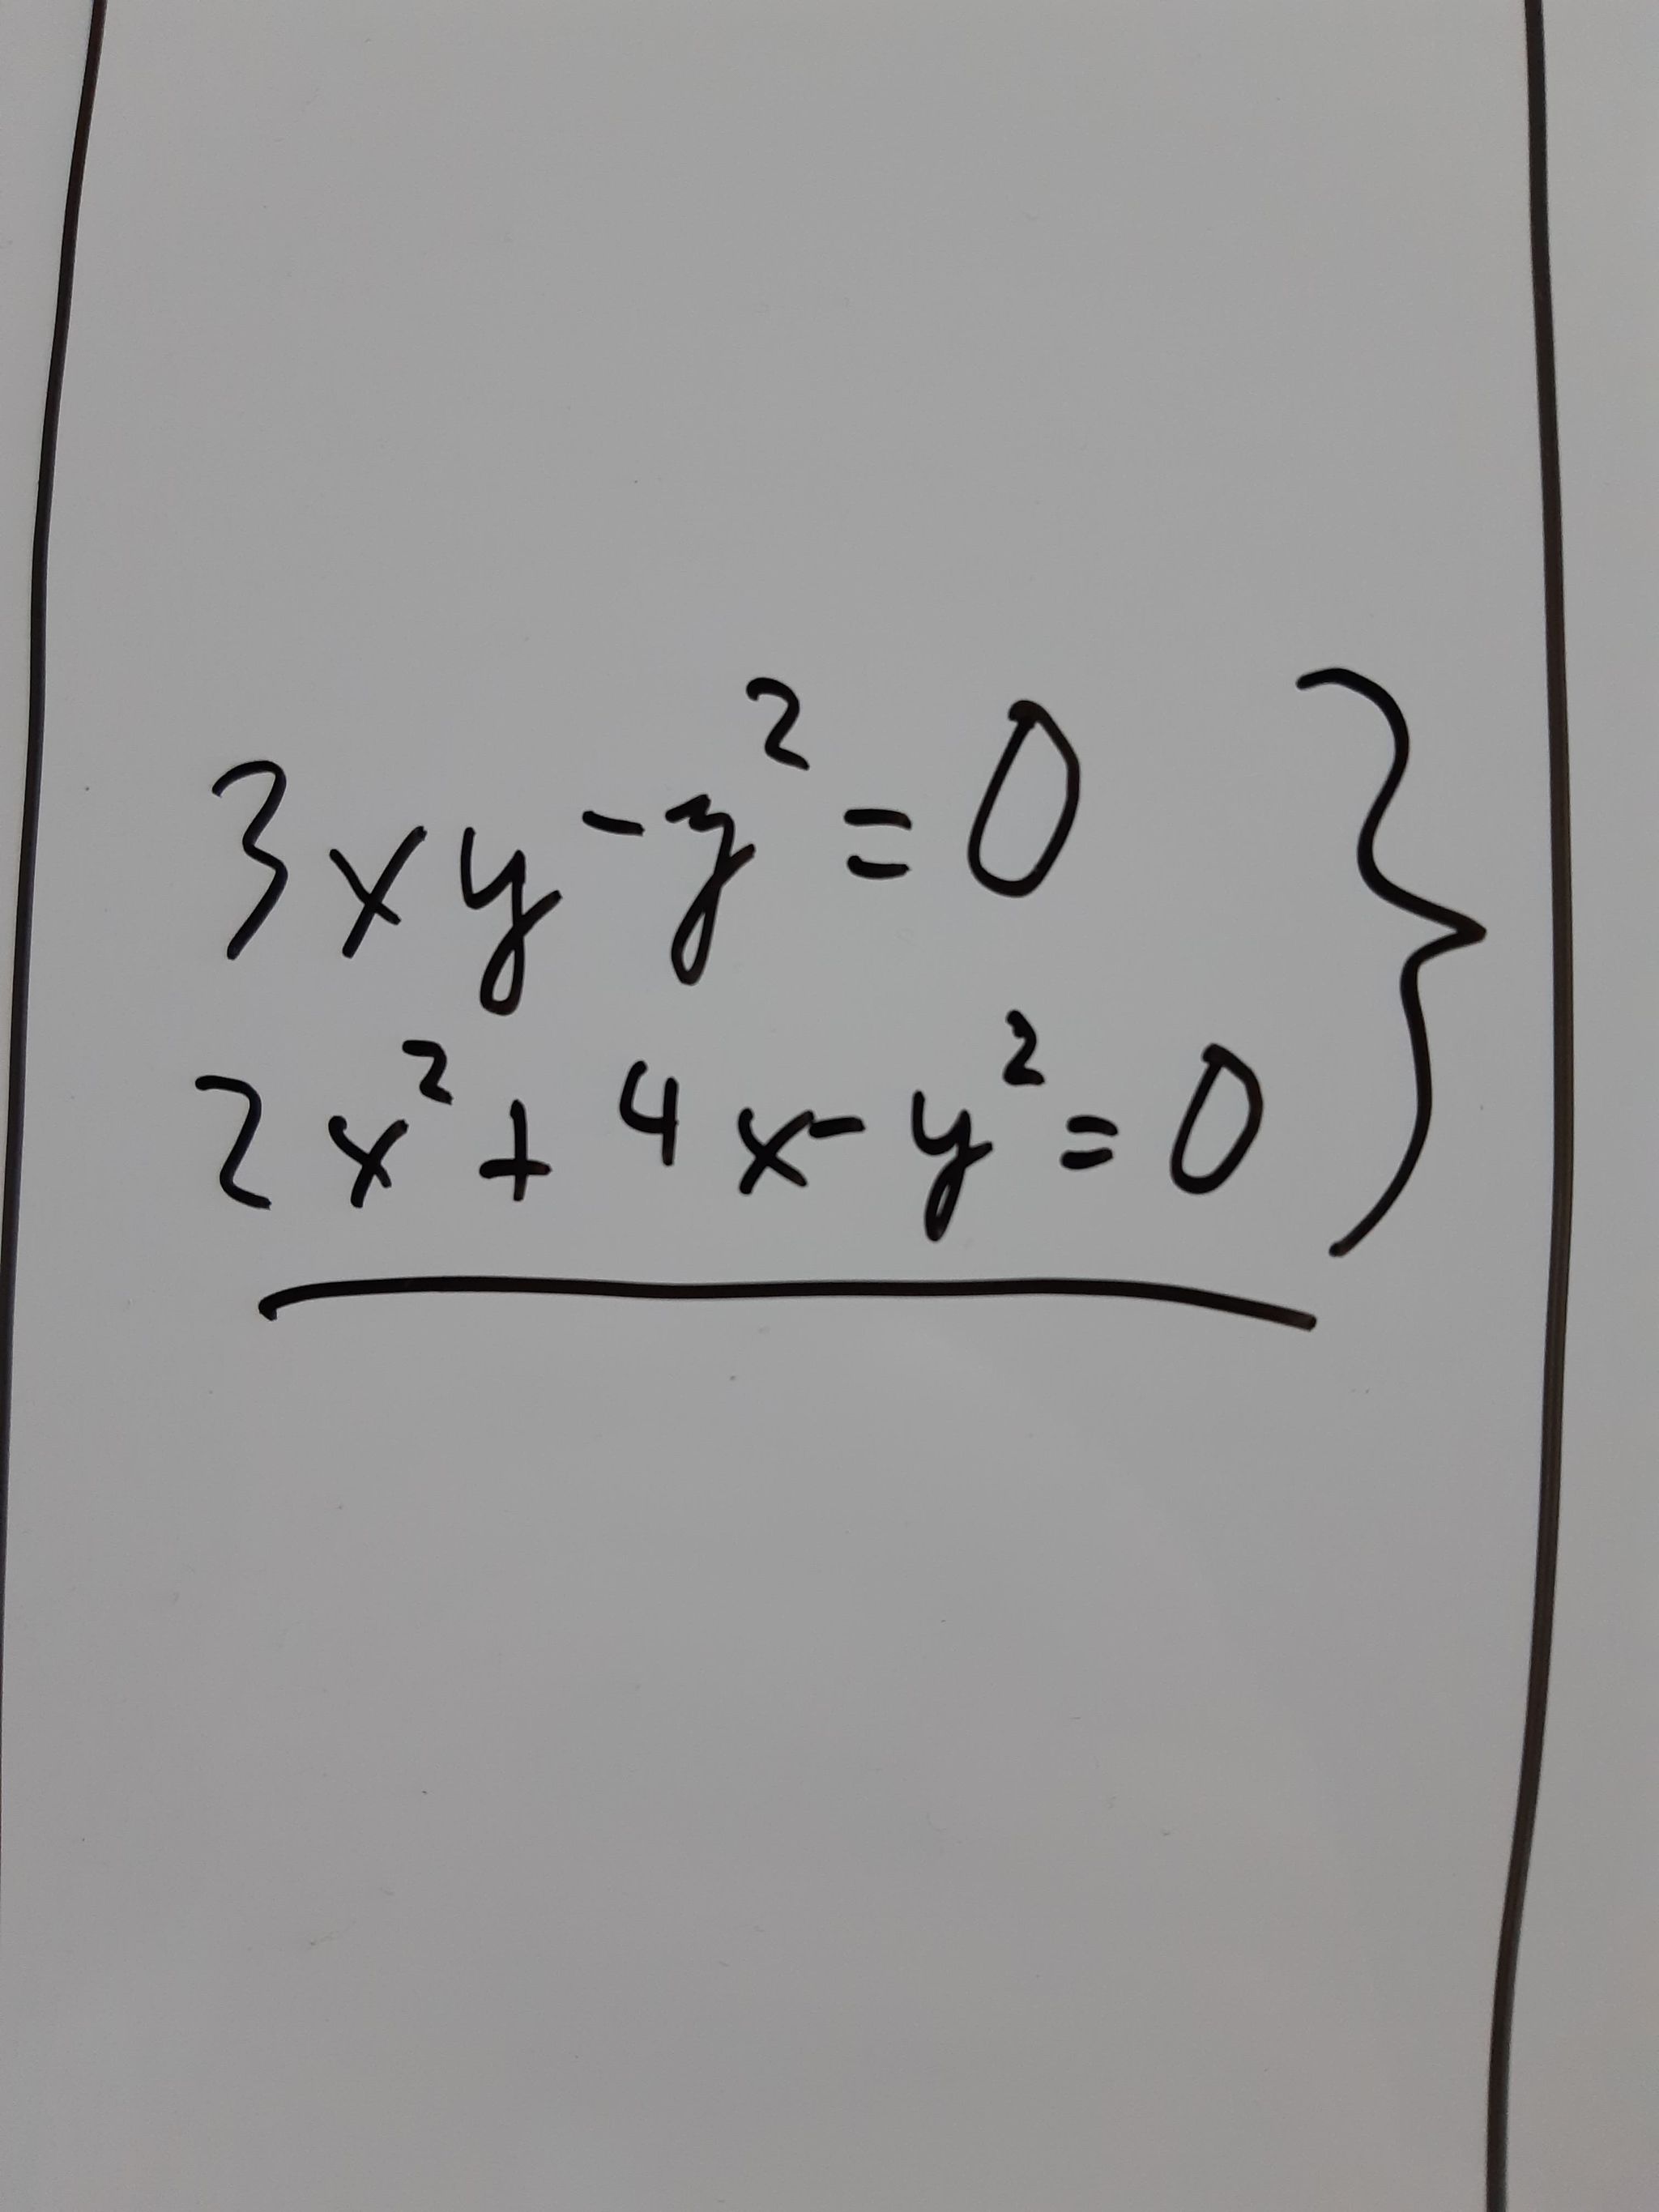 3xy - y² = 0
2x² + 4x - y² = 0